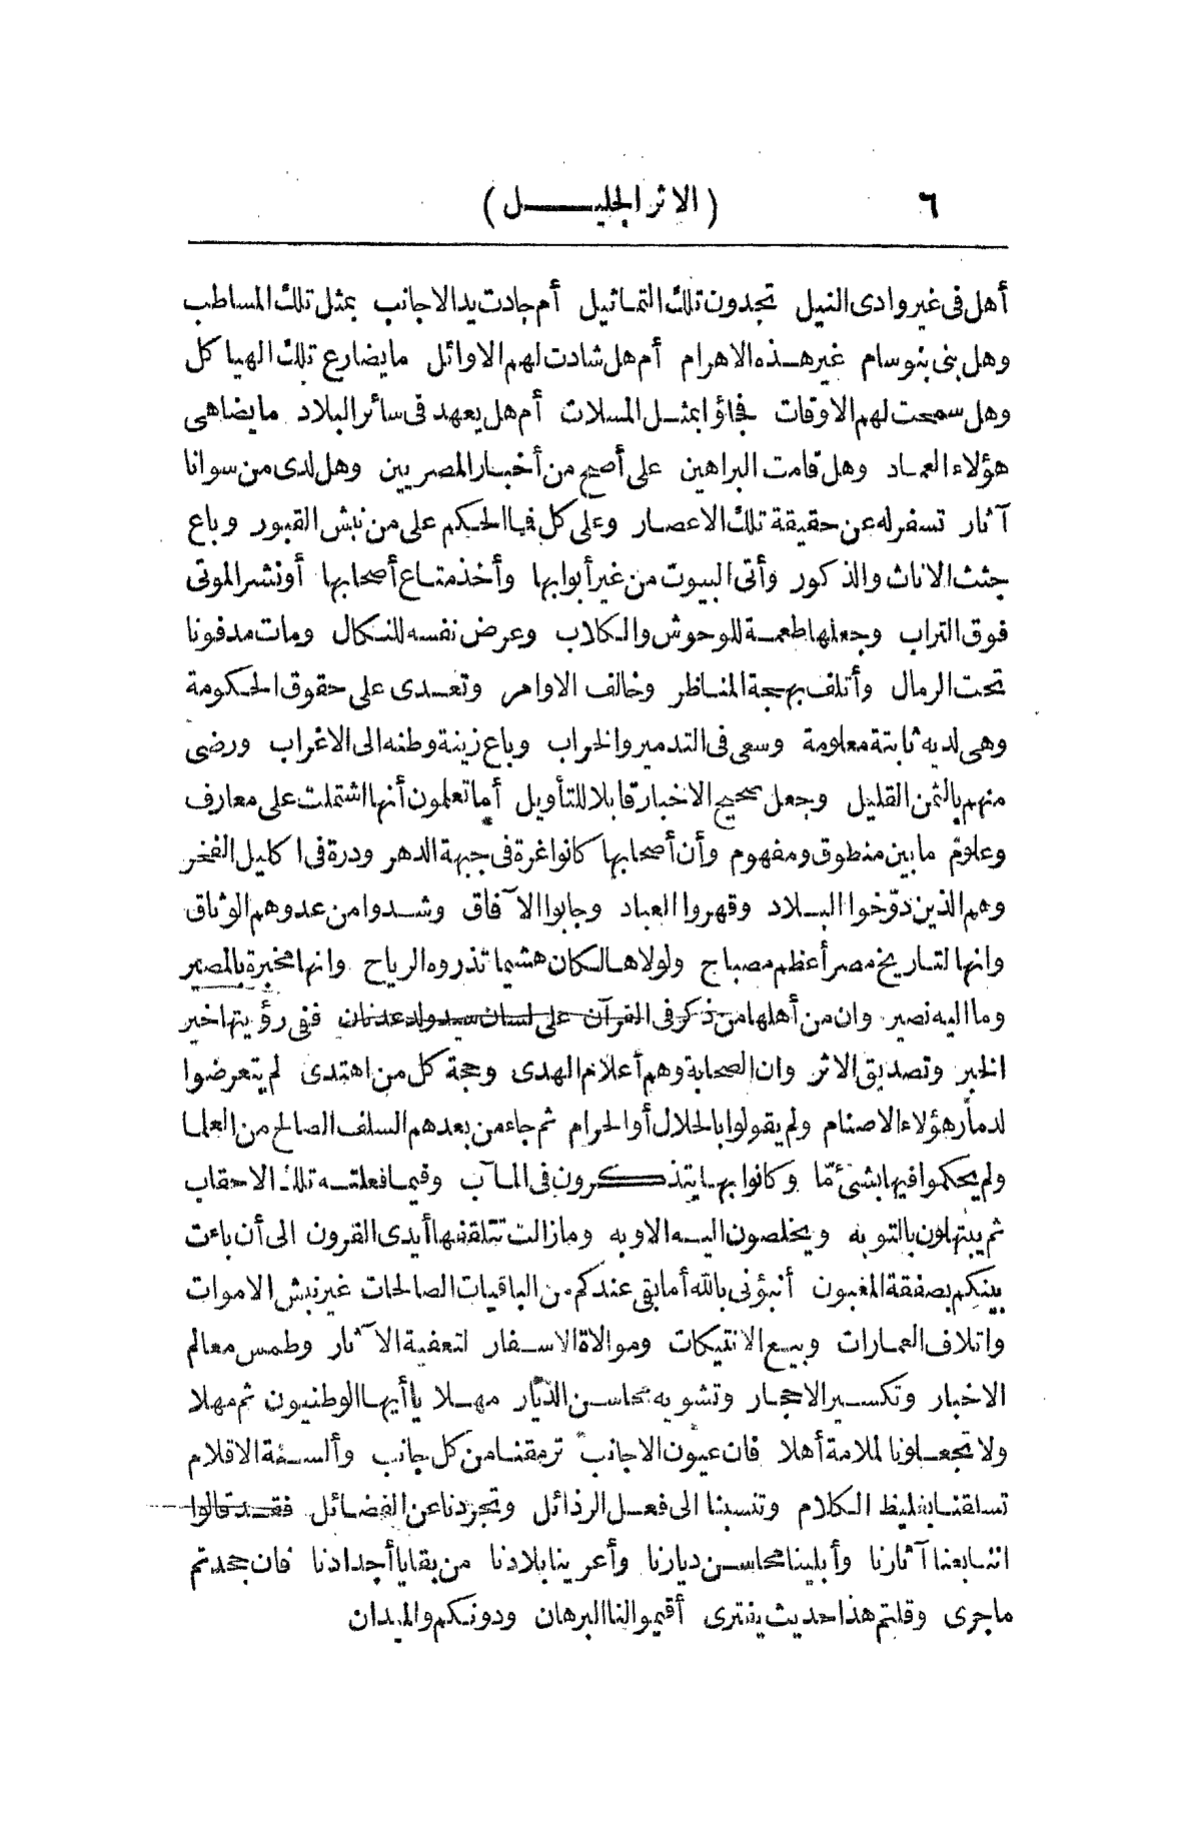 ٦ (الاثر الجليل)
أهل فى غير وادى النيل تجدون تلك التماثيل أم جادت يد الاجانب بمثل تلك المساطب
وهل بنى بنو سام غير هذه الاهرام أم هل شادت لهم الاوائل ما يضارع تلك الهياكل
وهل سمحت لهم الاوقات فجاؤا بمثل المسلات أم هل يعهد فى سائر البلاد ما يضاهى
هؤلاء العماد وهل قامت البراهين على أصح من أخبار المصريين وهل لدى من سوانا
آثار تسفر له عن حقيقة تلك الاعصار وعلى كل فما الحكم على من نبش القبور وباع
جثث الاناث والذكور وأتى البيوت من غير أبوابها وأخذ متاع أصحابها أونشر الموتى
فوق التراب وجعلها طعمة للوحوش والكلاب وعرض نفسه للنكال ومات مدفونا
تحت الرمال وأتلف بهجة المناظر وخالف الاوامر وتعدى على حقوق الحكومة
وهى لديه ثابتة معلومة وسعى فى التدمير والخراب وباع زينة وطنه الى الاغراب ورضى
منهم بالثمن القليل وجعل صحيح الاخبار قابلا للتأويل أما تعلمون أنها اشتملت على معارف
وعلوم ما بين منطوق ومفهوم وأن أصحابها كانوا غرة فى جبهة الدهر ودرة فى اكليل الفخر
وهم الذين دوّخوا البلاد وقهروا العباد وجابوا الآفاق وشدوا من عدوهم الوثاق
وانها لتاريخ مصر أعظم مصباح ولولاها لكان هشيما تذروه الرياح وانها مخبرة بالمصير
وما اليه نصير وان من أهلها من ذكر فى القرآن على لسان سيد ولد عدنان ففى رؤيتها خير
الخبر وتصديق الاثر وان الصحابة وهم أعلام الهدى وحجة كل من اهتدى لم يتعرضوا
لدمار هؤلاء الاصنام ولم يقولوا بالحلال أو الحرام ثم جاء من بعدهم السلف الصالح من العلما
ولم يحكموا فيها بشئ مّا وكانوا بها يتذكرون فى المآب وفيما فعلته تلك الاحقاب
ثم يبتهلون بالتوبه ويخلصون اليه الاوبه وما زالت تتلقفها أيدى القرون الى أن باءت
بينكم بصفقة المغبون أنبؤنى بالله أما بقى عندكم من الباقيات الصالحات غير نبش الاموات
واتلاف العمارات وبيع الانتيكات وموالاة الاسفار لتعفية الآثار وطمس معالم
الاخبار وتكسير الاحجار وتشويه محاسن الديار مهلا ياأيها الوطنيون ثم مهلا
ولا تجعلونا لملامة أهلا فان عيون الاجانب ترمقنا من كل جانب وألسنة الاقلام
تسلقنا بغليظ الكلام وتنسبنا الى فعل الرذائل وتجردنا عن الفضائل فقد قالوا
اننا بعنا آثارنا وأبلينا محاسن ديارنا وأعرينا بلادنا من بقايا أجدادنا فان جحدتم
ماجرى وقلتم هذا حديث يفترى أقيموا لنا البرهان ودونكم والميدان